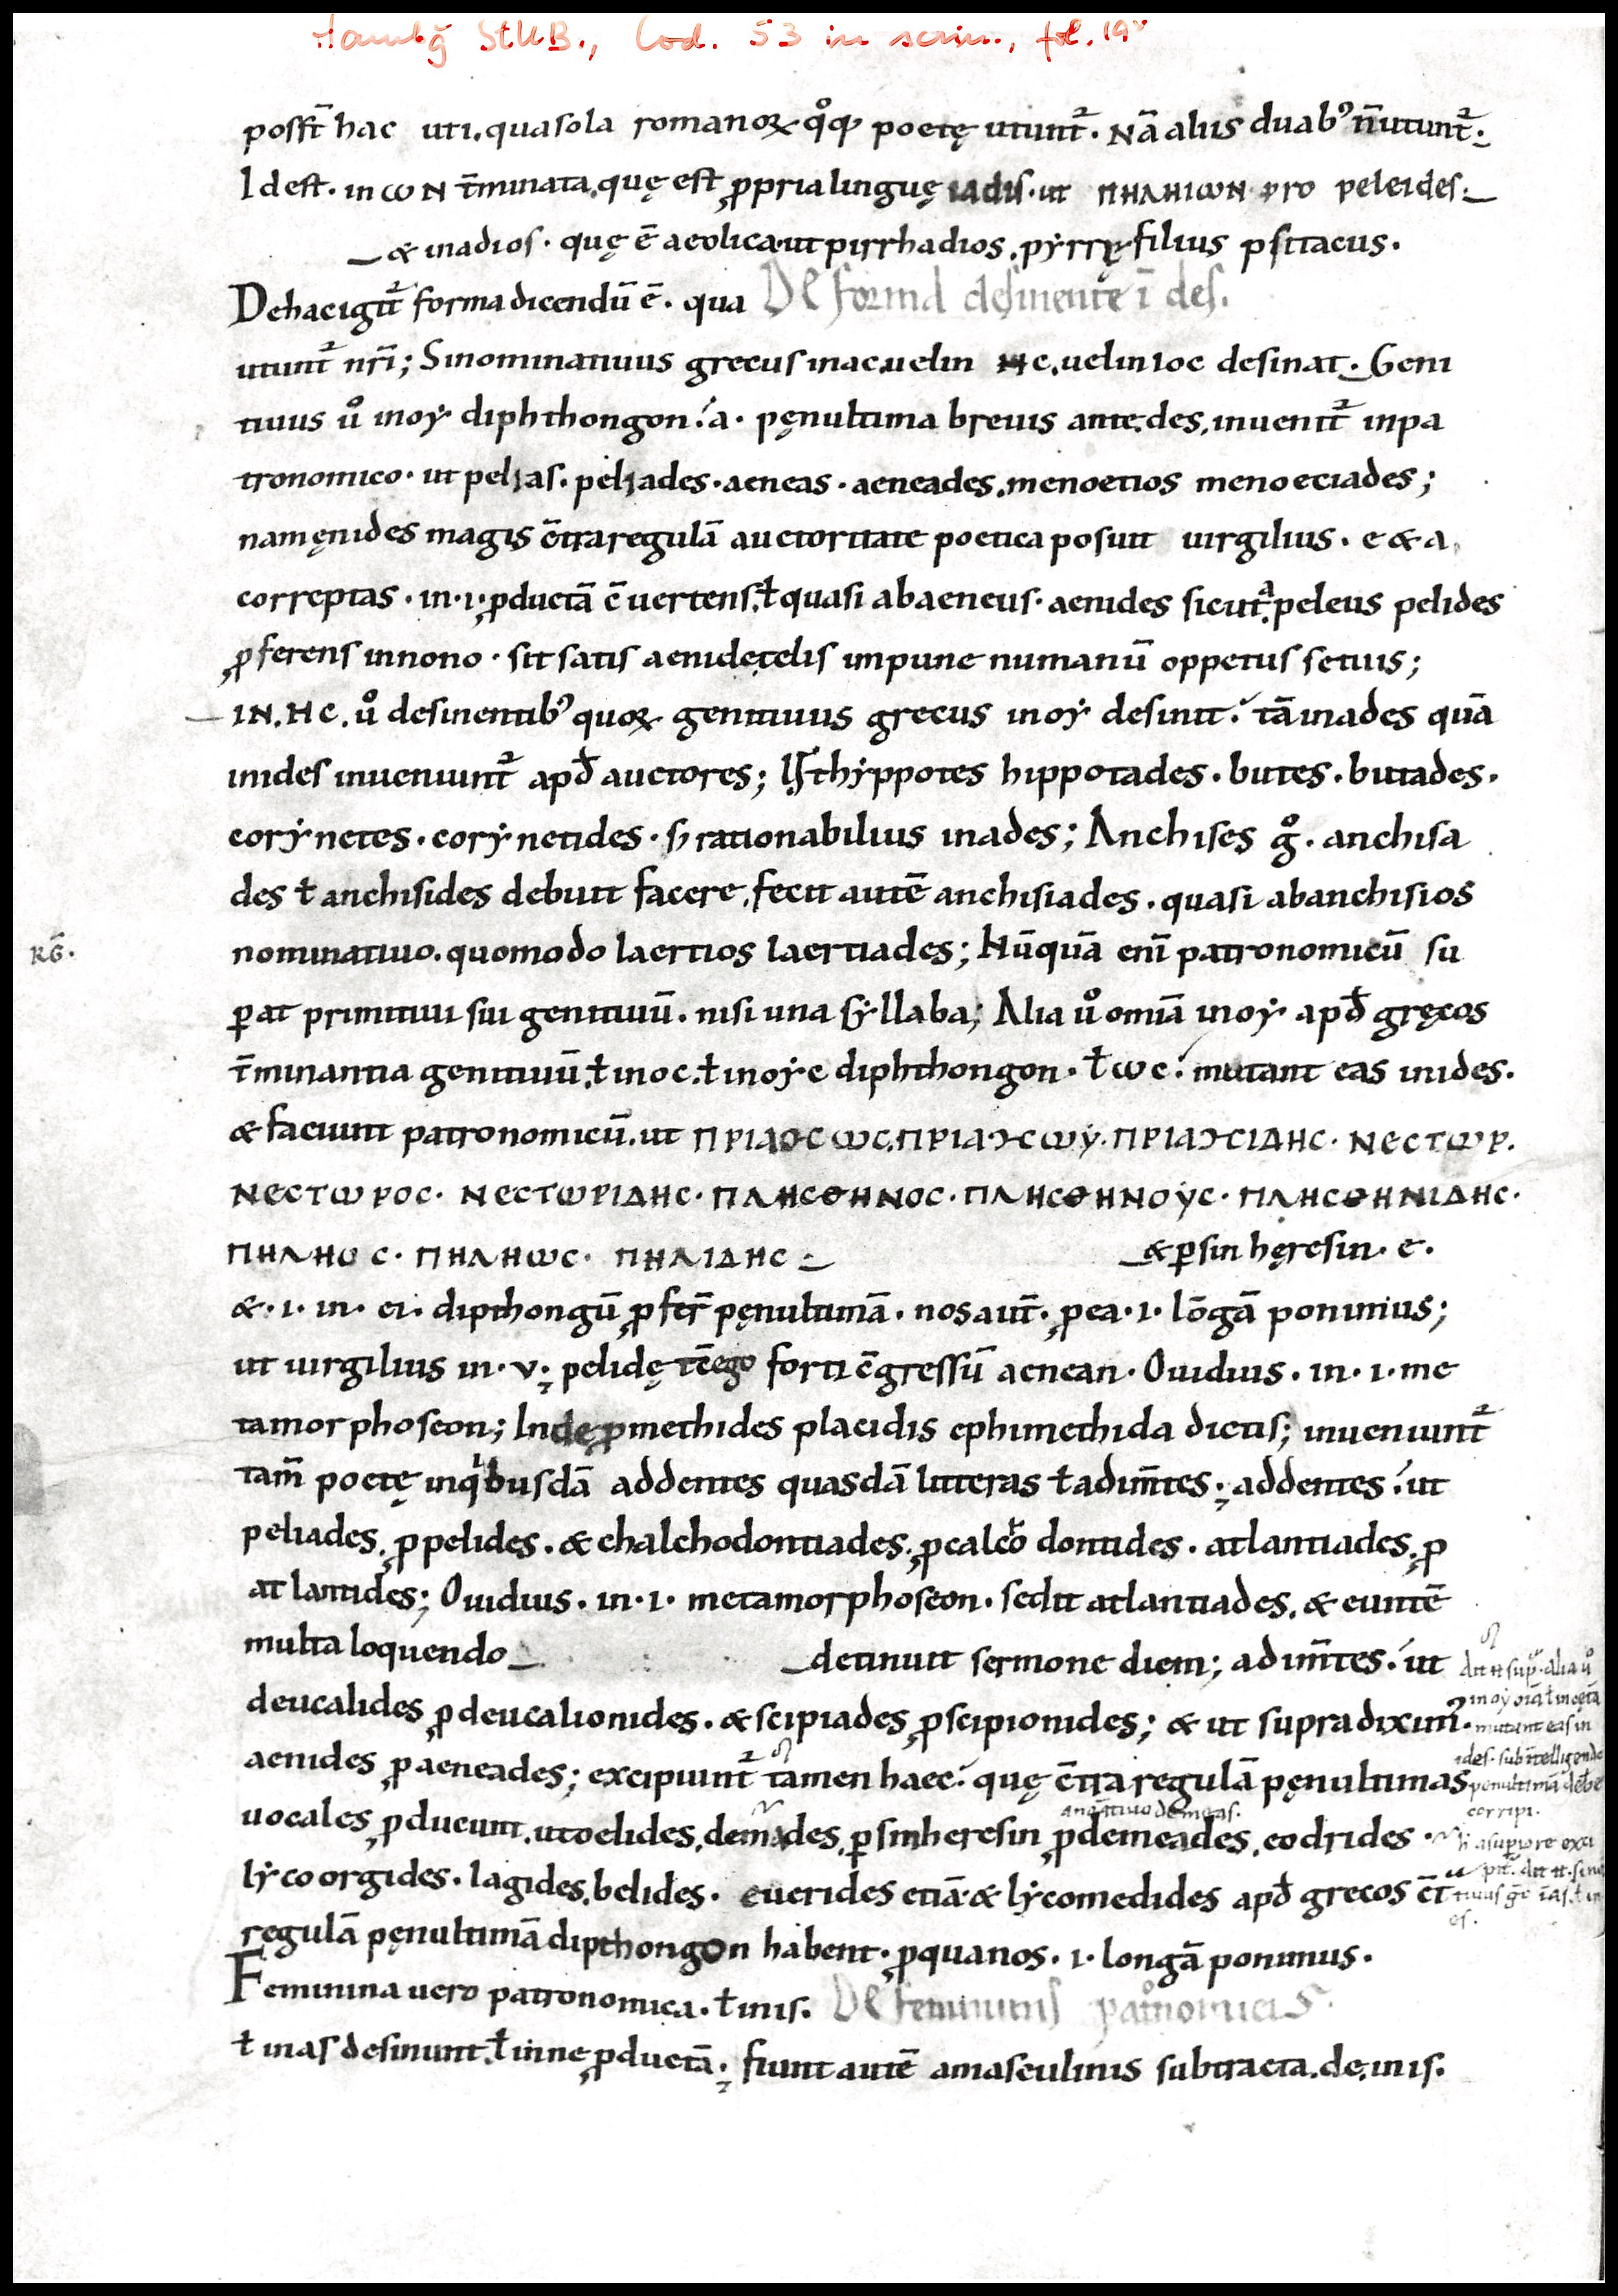 Hambg StUB., Cod. 53 in scrin., fol. 19v
possт̄ hac uti. qua sola romanoꝝ qͦqꝫ poetę utunt᷑. Nā aliis duabꝰ n̄ utunt᷑.
Id est. in ωN t̄minata. quę est ꝓpria linguę iadis. ut ΠΗΛΗΙωΝ. pro peleides.
& in adios. quę ē aeolica. ut pirrhadios. pẏrrę filius psitacus.
De hac igit᷑ forma dicendū ē. qua De forma desinente ī des.
utunt᷑ nr̄i; Si nominatiuus grecus in ac. uel in HC. uel in ioc desinat. Geni
tiuus uͦ in oẏ diphthongon. a. pęnultima breuis ante. des. inuenit᷑ in pa
tronomico. ut pelias. peliades. aeneas. aeneades. menoetios menoeciades;
nam ęnides magis c̄tra regulā auctoritate poetica posuit uirgilius. e & a.
correptas. in. i. ꝓductā c̄uertens. ł quasi ab aeneus. aenides sicut. a peleus pelides
ꝓferens in nono. sit satis aenidę telis impune numanū oppetus setuis;
IN. HC. uͦ desinentibꝰ quoꝝ genitiuus grecus in oẏ desinit. tā in ades quā
in ides inueniunt᷑ apđ auctores; Ut hẏppotes hippotades. butes. butades.
corẏnetes. corẏnetides. sꝫ rationabilius in ades; Anchises gͦ. anchisa
des ł anchisides debuit facere. fecit autē anchisiades. quasi ab anchisios
RḠ.
nominatiuo. quomodo laertios laertiades; Nūquā enī patronomicū su
ꝑat primitiui sui genitiuū. nisi una sẏllaba; Alia uͦ omīa in oẏ apđ gręcos
t̄minantia genitiuū. ł in oc. ł in oẏc diphthongon. ł ωc. mutant eas in ides.
& faciunt patronomicū. ut ΠΡΙΑϽϹωϹ. ΠΡΙΑϽϹωẎ. ΠΡΙΑϽϹΙΔΗϹ. ΝЄϹΤωΡ.
ΝЄϹΤωΡΟϹ. ΝЄϹΤωΡΙΔΗϹ. ΠΛΗϹΘΗΝΟϹ. ΠΛΗϹΘΗΝΟẎϹ. ΠΛΗϹΘΗΝΙΔΗϹ.
ΠΗΛΗΟϹ. ΠΗΛΗωϹ. ΠΗΛΙΔΗϹ
& ꝑ sinhęresin. e.
&. i. in. ei. dipthongū ꝓfer̄ pęnultimā. nos aut̄. ꝓ ea. i. lōgā ponimus;
ut uirgilius in. v. pelidę tc̄ ego forti c̄gressū aenean. Ouidius. in. i. me
tamorphoseon; Inde ꝓmethides placidis ephimethida dictis; inueniunt᷑
tam̄ poetę in qͥbusdā addentes quasdā litteras ł adim̄tes. addentes. ut
peliades. ꝓ pelides. & chalchodontiades. ꝓ calco dontides. atlantiades. ꝓ
atlantides; Ouidius. in. i. metamorphoseon. sedit atlantiades. & euntē
multa loquendo
detinuit sermone diem; adim̄tes. ut
deucalides ꝓ deucalionides. & scipiades ꝓ scipionides; & ut supra diximꝰ.
aenides ꝓ aeneades; excipiunt᷑ tamen haec. quę c̄tra regulā pęnultimas
uocales ꝓducunt. ut oelides. demades. ꝑ sinheresin ꝓ demeades. eodrides.
lẏcoorgides. lagides. belides. euerides etiā & lẏcomedides apđ grecos c̄t
regulā pęnultimā dipthongon habent. ꝓ qua nos. i. longā ponimus.
Feminina uero patronomica. ł in is. De femininis patͦnomicis.
ł in as desinunt. ł in ne ꝓductā. fiunt autē a masculinis subtracta. de. in is.
mutant eas in
ides. subintelligendo
penultimā debe
corripi.